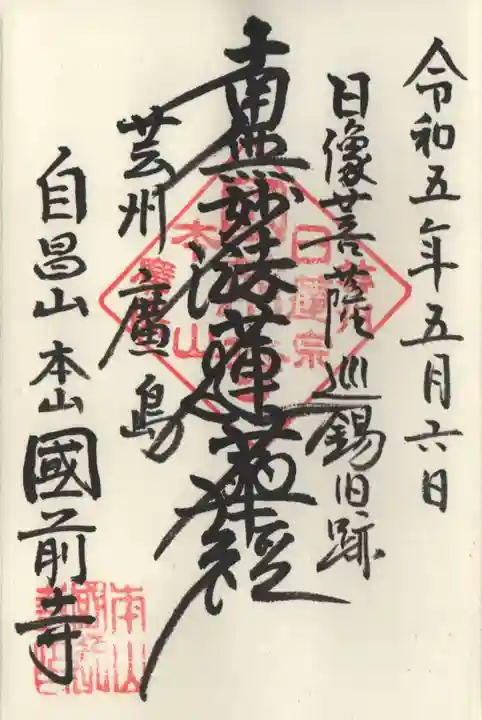 令和五年五月六日
日像菩薩巡錫旧跡
南無妙法蓮華経
日蓮宗
本山
芸州廣島
自昌山本山國前寺